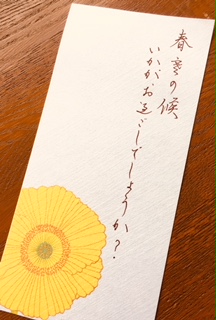 春寒の候
いかがお過ごしでしょうか?